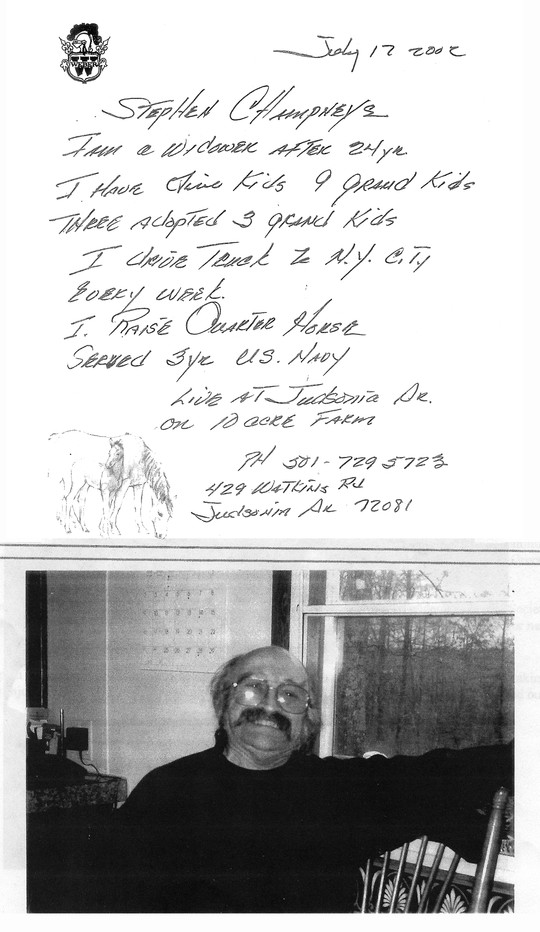 July 17 2002
WEBER
STEPHEN CHAMPNEYS
I AM a WIDOWER AFTER 24yr
I HAVE Five Kids 9 GRAND Kids
THREE ADOPTED 3 GRAND Kids
I DRIVE TRUCK To N.Y. CITY
EVERY WEEK.
I. RAISE QUARTER HORSE
SERVED 3yr U.S. NAVY
LIVE AT Judsonia Ar.
ON 10 ACRE FARM
PH 501-729 5723
429 WATKINS Rd
Judsonia Ar 72081